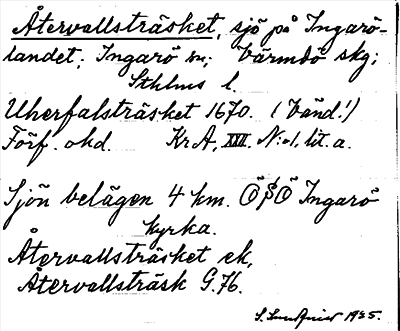 Återvallsträsket, sjö på Ingarö-
landet; Ingarö sn; Värmdö skg;
Sthlms l.
Uherfalsträsket 1670. (Vänd!)
Förf. okd. KrA, XXII. N:o1, lit. a.
Sjön belägen 4 km. ÖSÖ Ingarö
kyrka.
Återvallsträsket ek,
Återvallsträsk G.76.
1925.